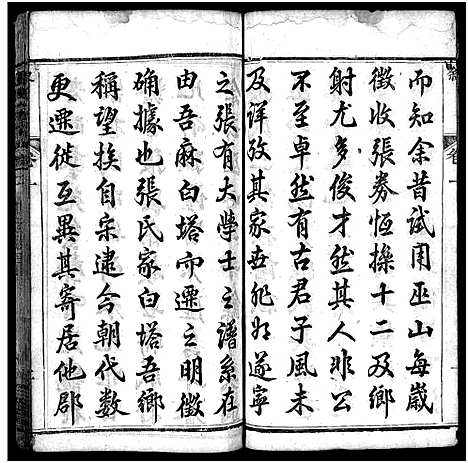 而知余昔試用巫山每歲
徵收張券恆操十二及鄉
射尤多俊才然其人非公
不至卓然有古君子風未
及詳攷其家世非如遂寧
之張有大學士之譜系在
由吾麻白塔而遷之明徵
确據也張氏家白塔吾鄉
稱望族自宋逮今朝代數
更遷徙互異其寄居他郡
卷一